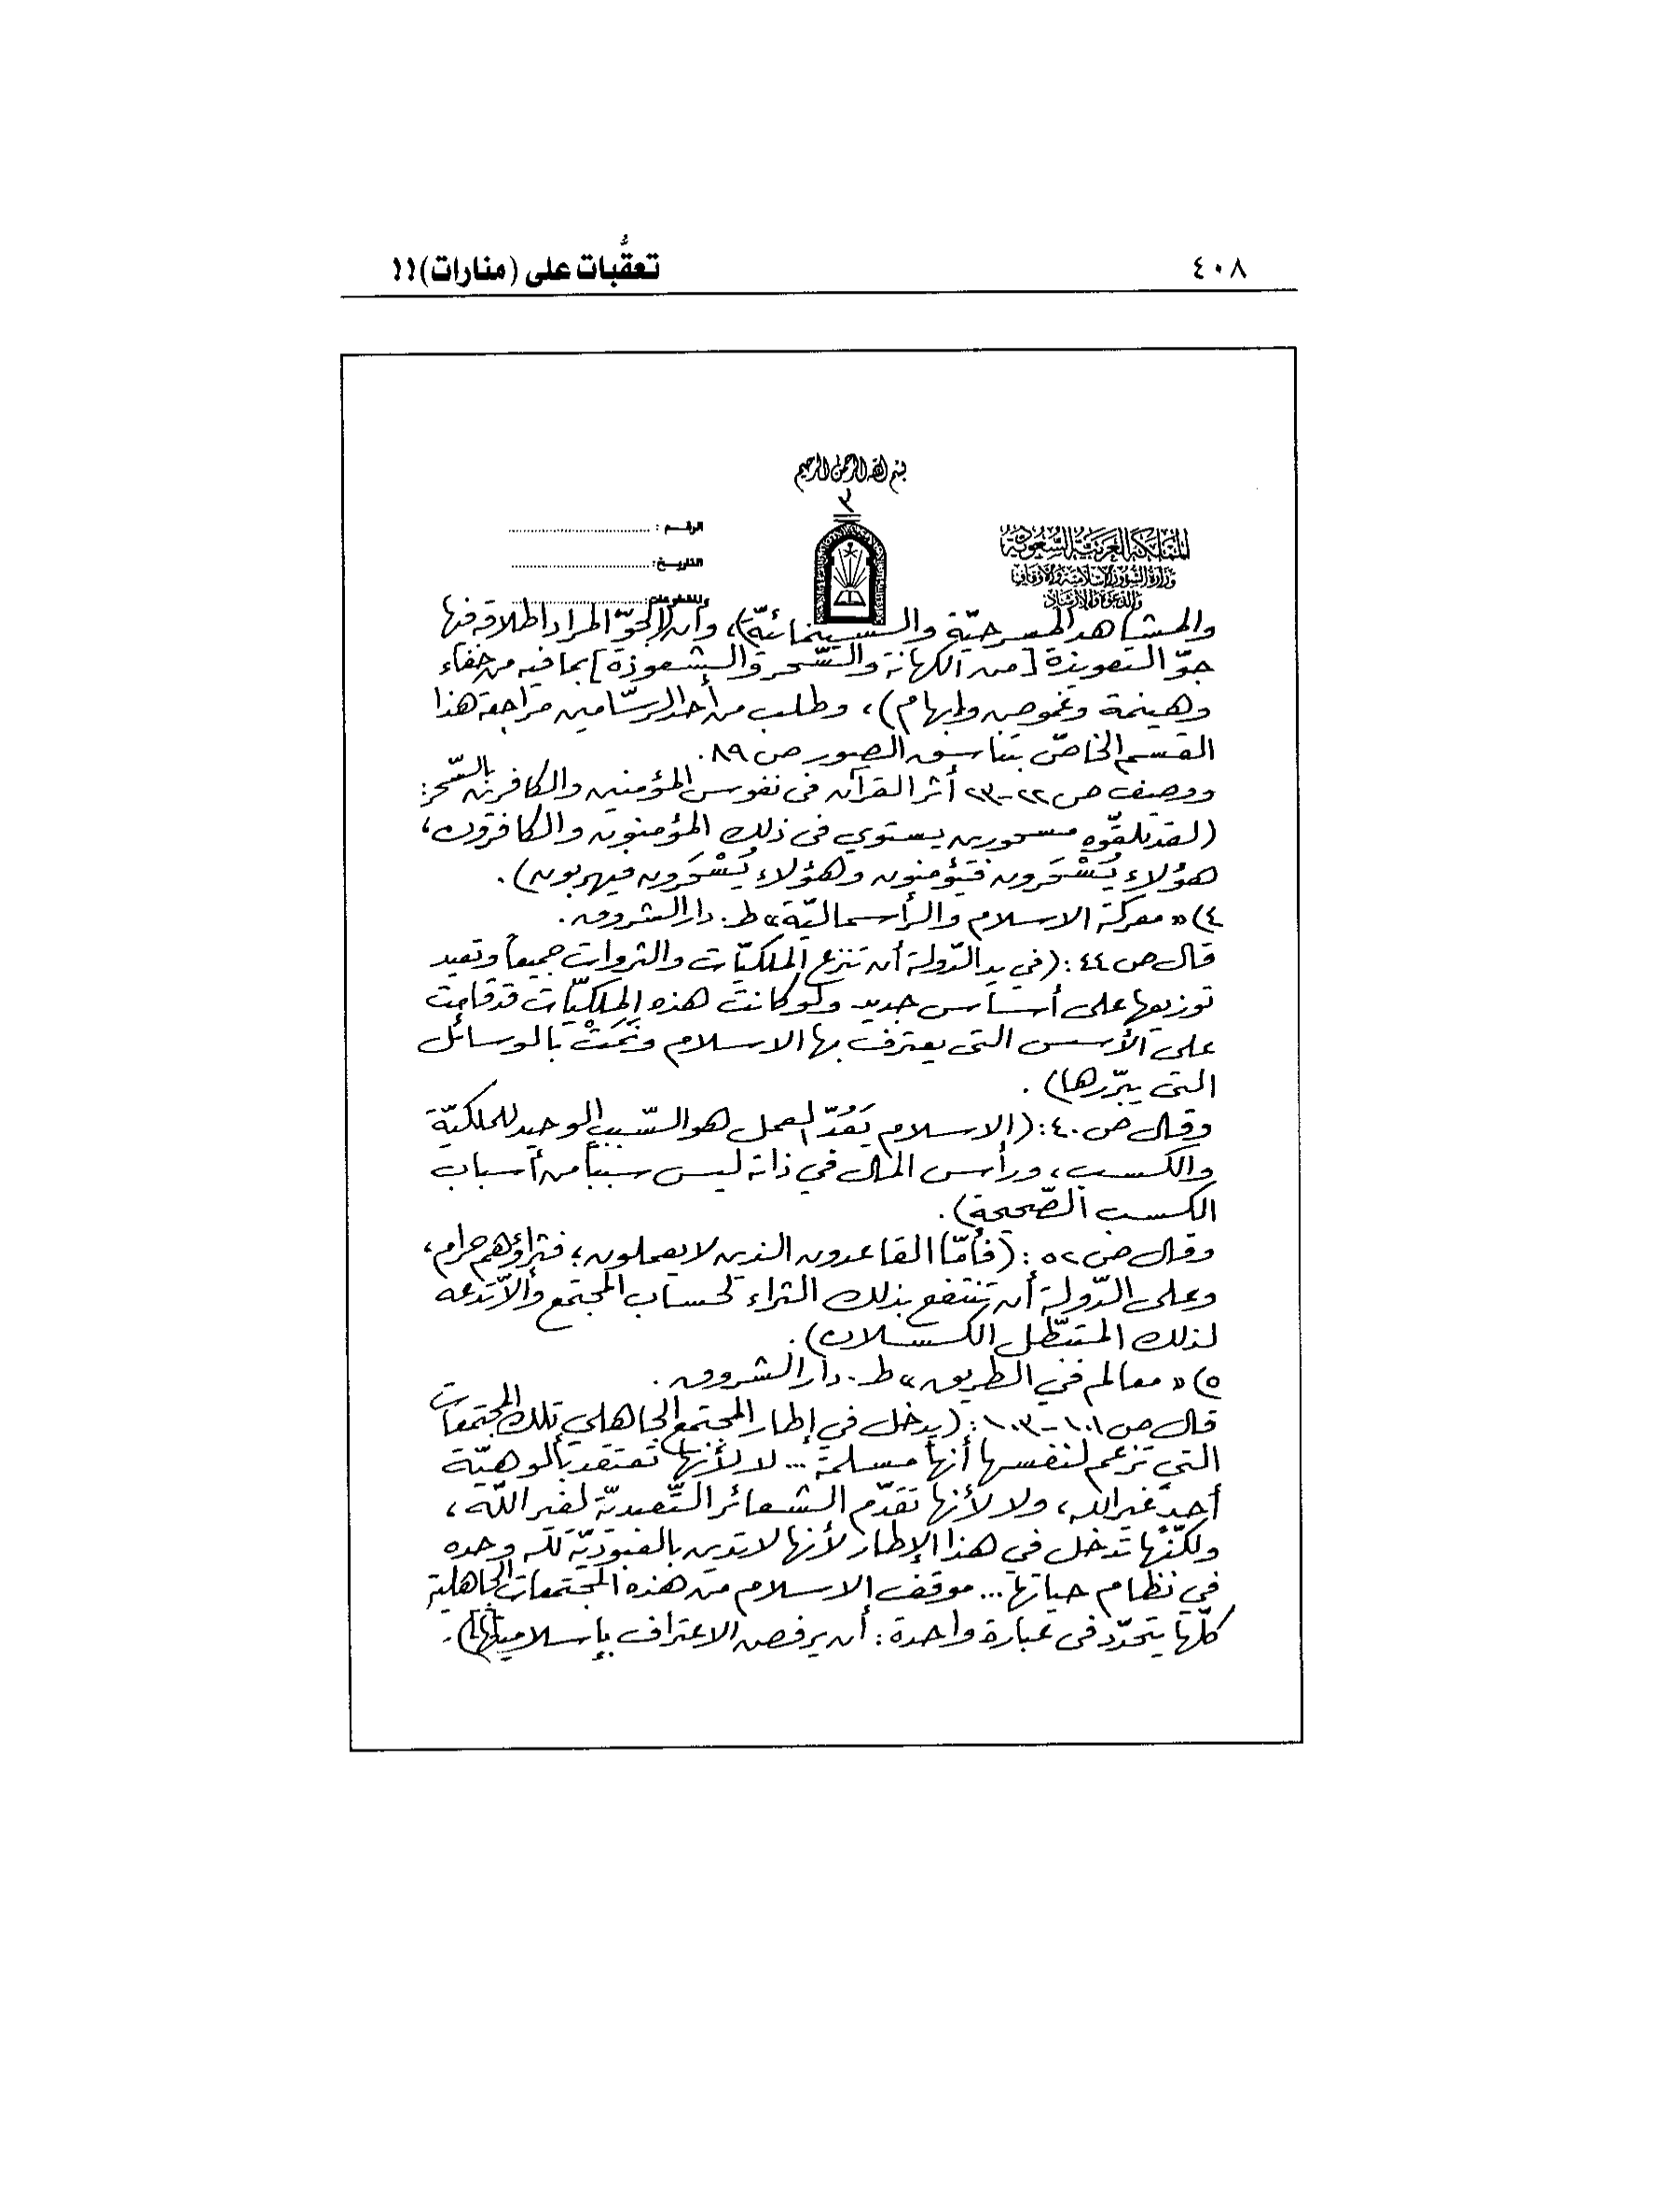 ٤٠٨
تعقُّبات على (منارات)!!
بسم الله الرحمن الرحيم
٣
المملكة العربية السعودية
وزارة الشؤون الإسلامية والأوقاف
والدعوة والإرشاد
الرقـم :
التاريـخ :
والمشاهد المسرحيّة والسينمائيّة)، وأن (الجوّ المراد إطلاقه فيها
جوّ التعويذة [من الكهانة والسّحر والشعوذة] بما فيه من خفاء
وهينمة وغموض وإبهام)، وطلب من أحد الرسّامين مراجعة هذا
القسم الخاصّ بتناسق الصور ص ٨٩.
ووصف ص ٢٢-٢٣ أثر القرآن في نفوس المؤمنين والكافرين بالسّحر:
(لقد تلقّوه مسحورين يستوي في ذلك المؤمنون والكافرون،
هؤلاء يُسْحَرون فيؤمنون وهؤلاء يُسْحَرون فيهربون).
٤) «معركة الاسلام والرأسماليّة» ط. دار الشروق.
قال ص ٤٤: (في يد الدّولة أن تنزع الملكيّات والثروات جميعاً وتعيد
توزيعها على أساس جديد ولو كانت هذه الملكيّات قد قامت
على الأسس التي يعترف بها الاسلام ونَمَتْ بالوسائل
التي يبرّرها).
وقال ص ٤٠: (الاسلام يَعُدّ العمل هو السّبب الوحيد للملكيّة
والكسب، ورأس المال في ذاته ليس سبباً من أسباب
الكسب الصّحيحة).
وقال ص ٥٢: (فأمّا القاعدون الذين لا يعملون؛ فثراؤهم حرام،
وعلى الدّولة أن تنتفع بذلك الثراء لحساب المجتمع وألاّ تدعه
لذلك المتبطّل الكسلان).
٥) «معالم في الطريق» ط. دار الشروق.
قال ص ١٠١-١٠٣: (يدخل في إطار المجتمع الجاهلي تلك المجتمعات
التي تزعم لنفسها أنها مسلمة... لا لأنها تعتقد بألوهيّة
أحدٍ غير الله، ولا لأنها تقدّم الشعائر التّعبديّة لغير الله،
ولكنّها تدخل في هذا الإطار لأنها لا تدين بالعبوديّة لله وحده
في نظام حياتها... موقف الاسلام من هذه المجتمعات الجاهلية
كلّها يتحدّد في عبارة واحدة: أن يرفض الاعتراف بإسلاميتها).